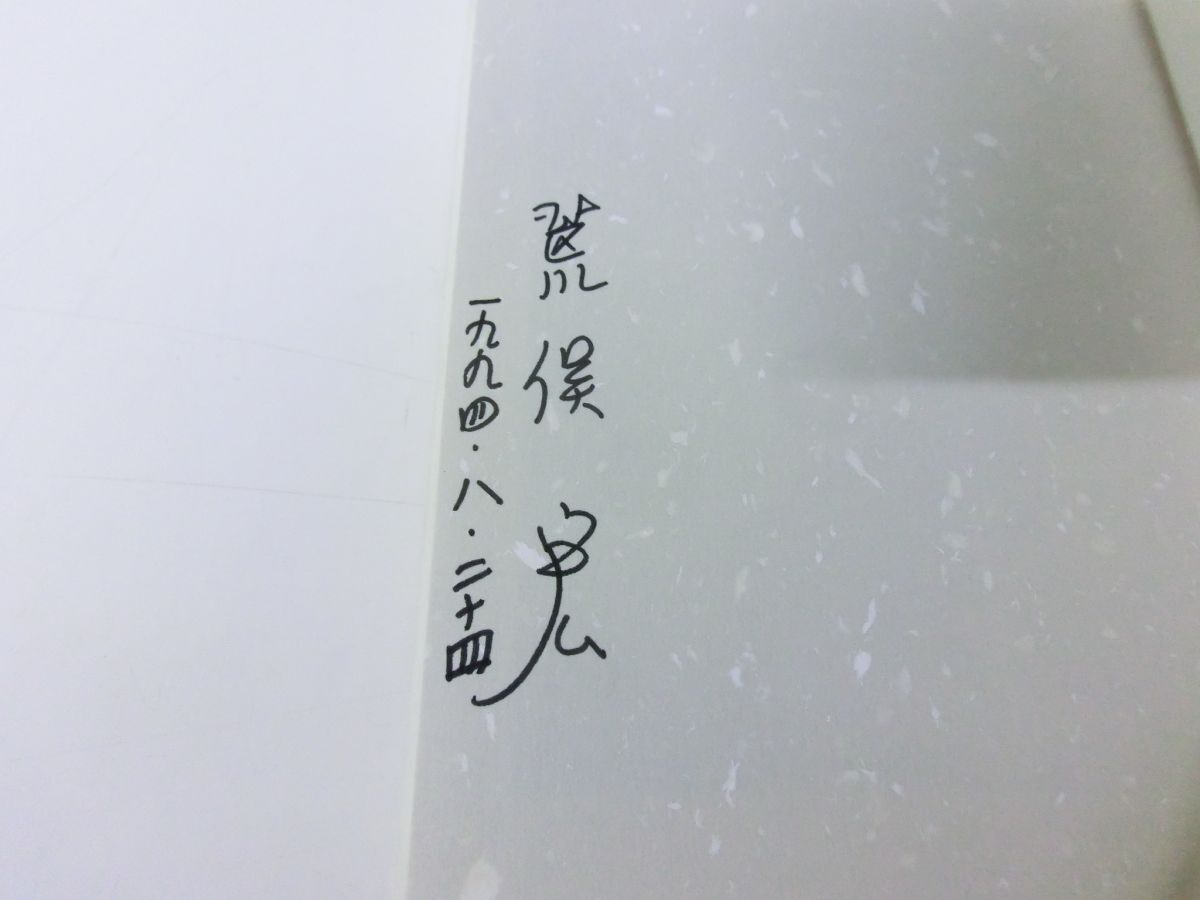 荒俣宏
一九九四・八・二十四